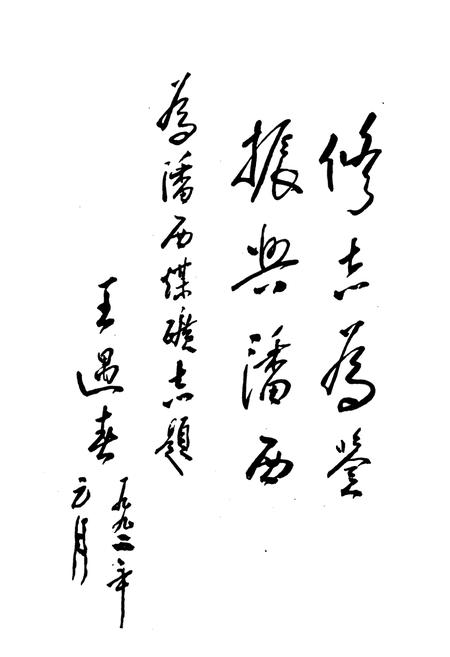 修志為鑒
振興潘西
為潘西煤礦志題
王遇春
一九九二年
元月